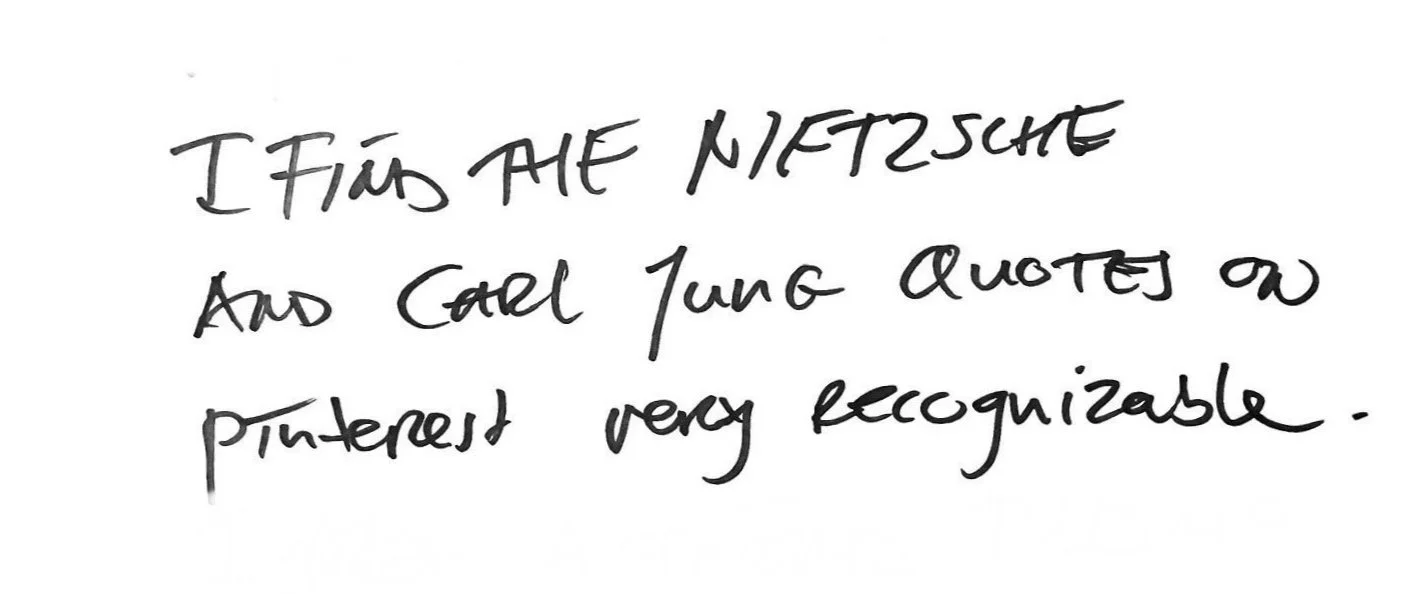 I FIND THE NIETZSCHE
AND CARL JUNG QUOTES ON
pinterest very recognizable.